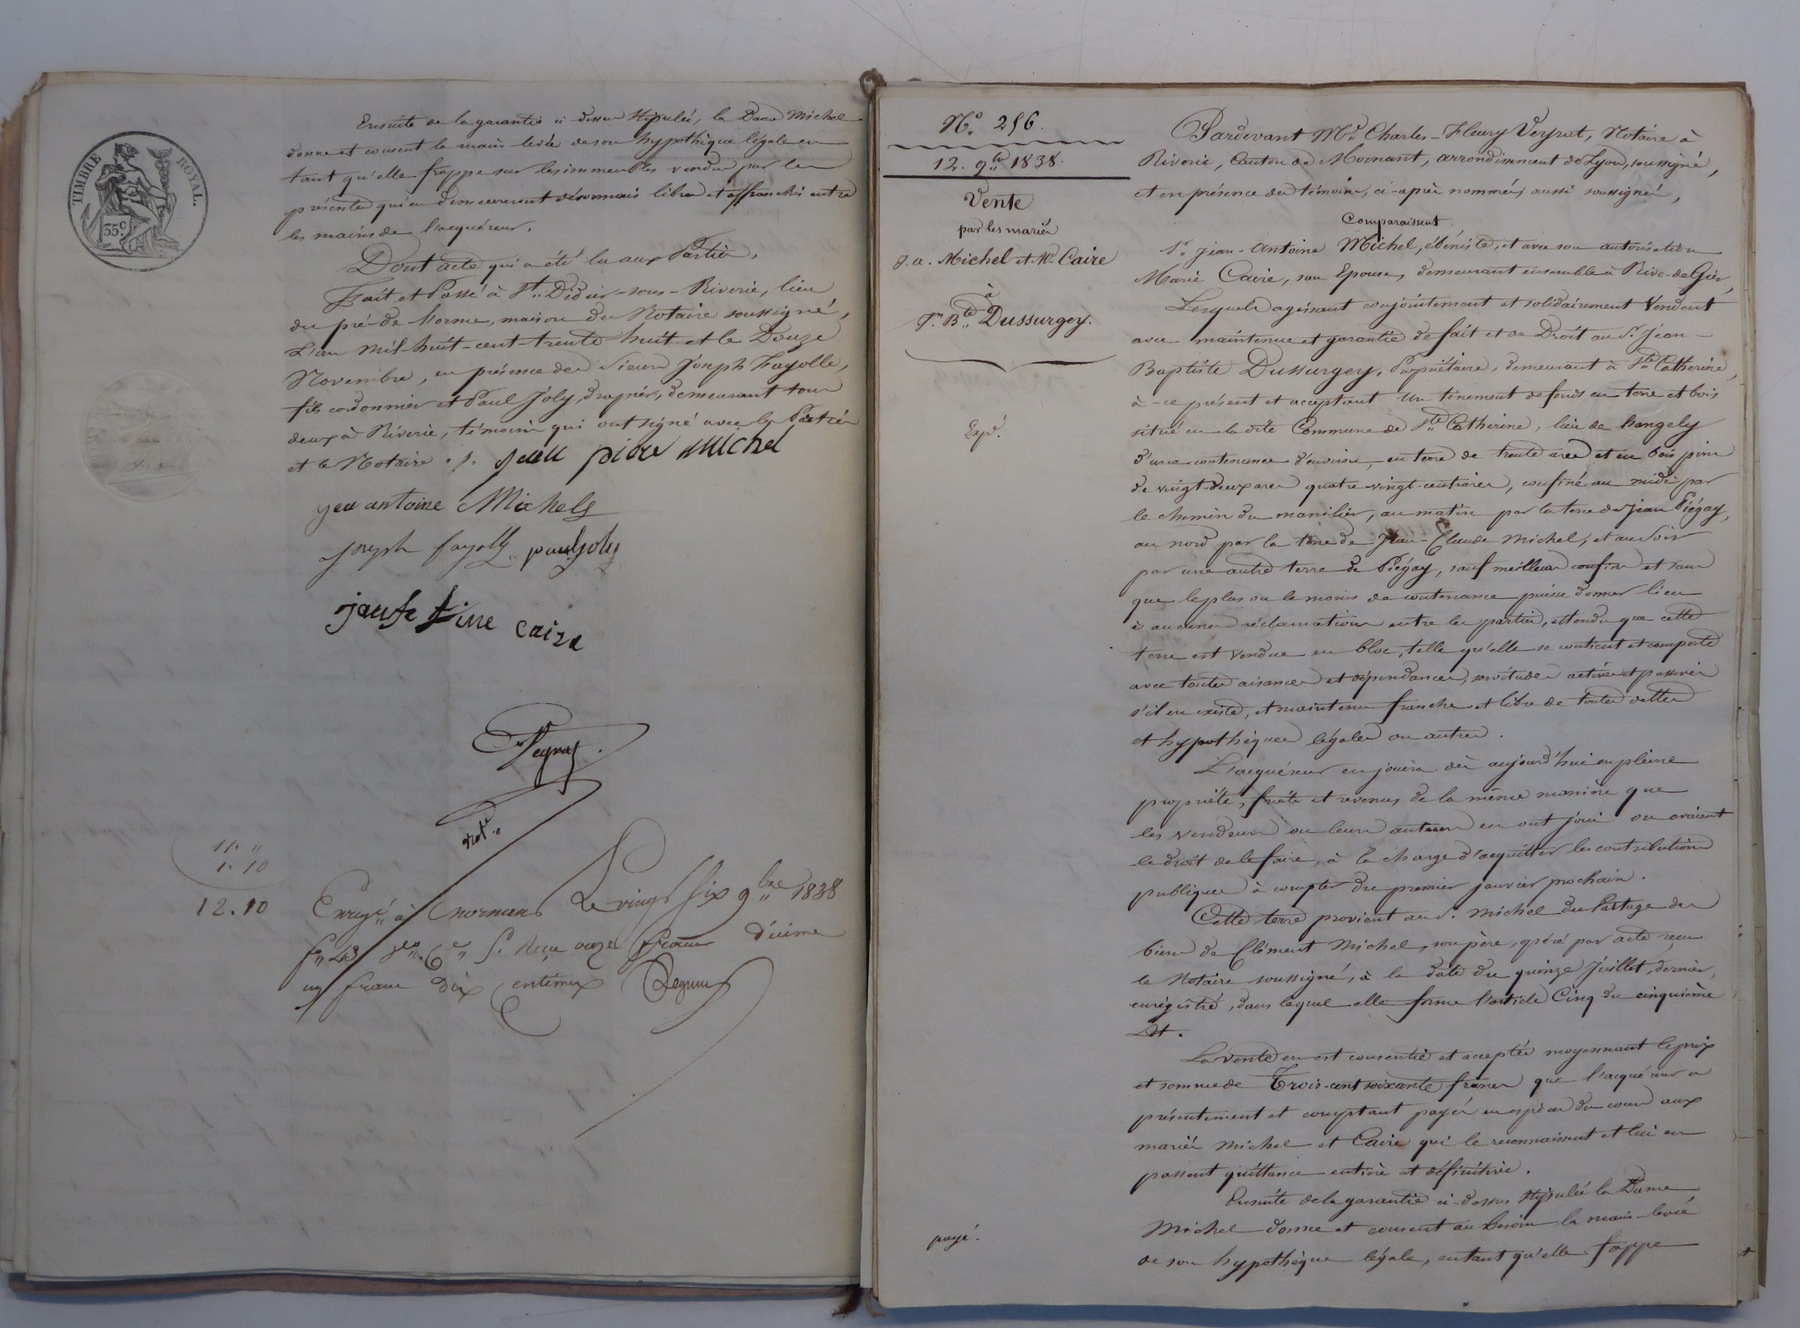 TIMBRE ROYAL.
35 c.
Ensuite de la garantie ci dessus stipulée, la Dame Michel
donne et consent la main levée de son hypothèque légale en
tant qu'elle frappe sur les immeubles vendus par les
présentes qui en demeureront désormais libres et affranchis entre
les mains de l'acquéreur.
Dont acte qui a été lu aux Parties.
Fait et Passé à St. Didier-sous-Riverie, lieu
du pré-de lorme, maison du Notaire soussigné,
L'an Mil-huit-cent-trente huit et le Douze
Novembre, en présence des Sieurs Joseph Fayolle,
fils cordonnier et Paul Joly, drapier, demeurant tous
deux à Riverie, témoins qui ont signé avec les Parties
et le Notaire ./. jean piere michel
jea antoine Michel
joseph fayolle paul joly
caire
Veyrat
not.
11. "
1. 10
12. 10
Enregé à Mornant Le vingt six 9bre 1838
f° 43 Reçu onze francs décime
un franc dix centimes
N° 256.
12. 9bre 1838.
Vente
par les mariés
J. a. Michel et Mie Caire
à
Jn Bte Dussurgey.
Expé.
payé.
Pardevant Me Charles-Fleury Veyrat, Notaire à
Riverie, Canton de Mornant, arrondissement de Lyon, soussigné,
et en présence des témoins, ci-après nommés, aussi soussignés,
Comparaissent
Sr. Jean-Antoine Michel, ébéniste, et avec son autorisation
Marie Caire, son Epouse, demeurant ensemble à Rive-de-Gier,
Lesquels agissant conjointement et solidairement Vendent
avec maintenue et garantie de fait et de Droit au Sr. Jean-
Baptiste Dussurgey, Propriétaire, demeurant à Ste Catherine,
à-ce présent et acceptant Un tinement de fonds en terre et bois
situé en la dite Commune de Ste Catherine, lieu de hangely
d'une contenance d'environ, en terre de trente ares et en bois pins
de vingt-deux ares quatre-vingt-centiares, confiné au midi par
le chemin du manilier, au matin par la terre de Jean Piégay,
au nord par la terre de Jean-Claude Michel, et au Soir
par une autre terre de Piégay, sauf meilleurs confins et sans
que le plus ou le moins de contenance puisse donner lieu
à aucunes réclamations entre les parties, attendu que cette
terre est vendue en bloc, telle qu'elle se contient et comporte
avec toutes aisances et dépendances, servitudes actives et passives
s'il en existe, et maintenue franche et libre de toutes dettes
et hypothèques légales ou autres.
L'acquéreur en jouira dès aujourd'hui en pleine
propriété, fruits et revenus de la même manière que
les vendeurs ou leurs auteurs en ont joui ou avaient
le droit de le faire, à la charge d'acquitter les contributions
publiques à compter du premier janvier prochain.
Cette terre provient au Sr. Michel du Partage des
biens de Clément Michel, son père, opéré par acte reçu
le Notaire soussigné, à la date du quinze Juillet, dernier,
enregistré, dans lequel elle forme l'article Cinq du cinquième
Lot.
La vente en est consentie et acceptée moyennant le prix
et somme de Trois-cent soixante francs que l'acquéreur a
présentement et comptant payés en espèces du cours aux
mariés Michel et Caire qui le reconnaissent et lui en
passent quittance entière et définitive.
Ensuite de la garantie ci-dessus stipulée la Dame
Michel donne et consent au besoin la main-levée
de son hypothèque légale, en tant qu'elle frappe